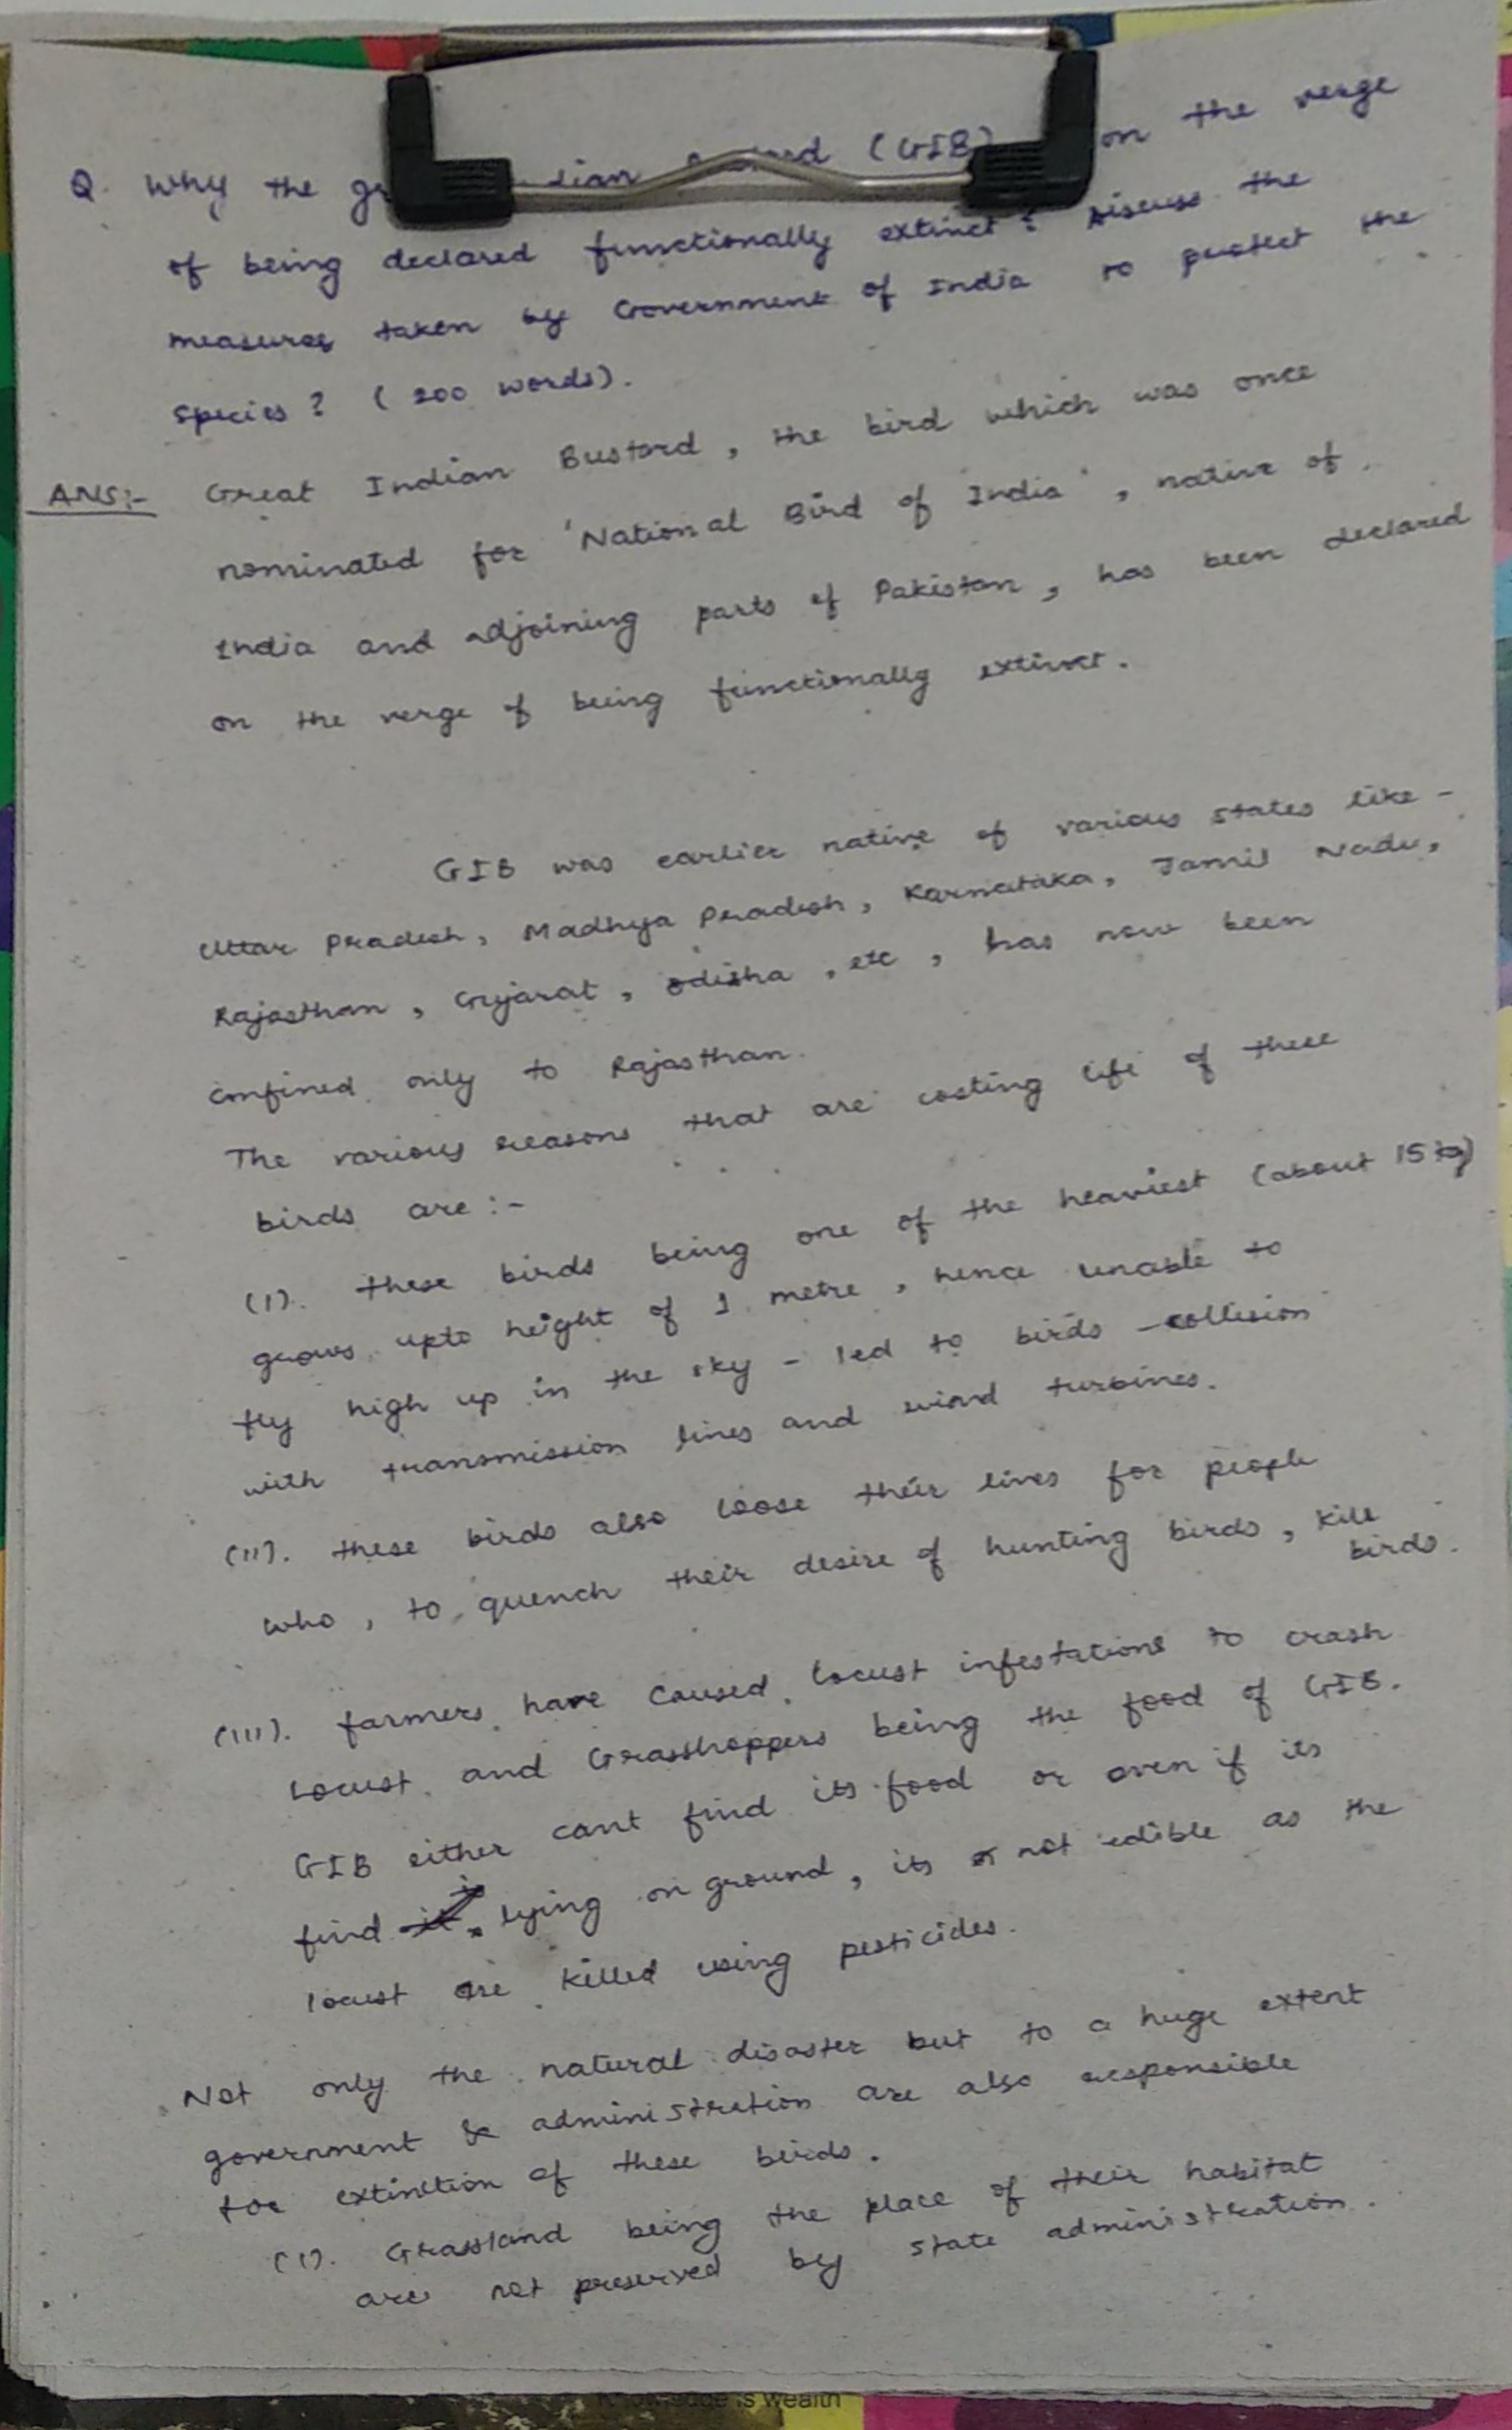 Q. Why the dian (GIB) on the verge
of being declared functionally extinct? Discuss the
measures taken by Government of India to protect the
species? (200 words).
ANS:- Great Indian Bustard, the bird which was once
nominated for 'National Bird of India', native of
India and adjoining parts of Pakistan, has been declared
on the verge of being functionally extinct.
GIB was earlier native of various states like -
Uttar Pradesh, Madhya Pradesh, Karnataka, Tamil Nadu,
Rajasthan, Gujarat, Odisha, etc, has now been
confined only to Rajasthan.
The various reasons that are costing life of these
birds are :-
(I). These birds being one of the heaviest (about 15 kg)
grows upto height of 1 metre, hence unable to
fly high up in the sky - led to birds - collision
with transmission lines and wind turbines.
(II). These birds also loose their lives for people
who, to quench their desire of hunting birds, kill
birds.
(III). farmers have caused locust infestations to crash
locust and Grasshoppers being the food of GIB.
GIB either cant find its food or even if its
find is lying on ground, its not edible as the
locust are killed using pesticides.
Not only the natural disaster but to a huge extent
government & administration are also responsible
for extinction of these birds.
(I). Grassland being the place of their habitat
are not preserved by state administration.
Knowledge is wealth